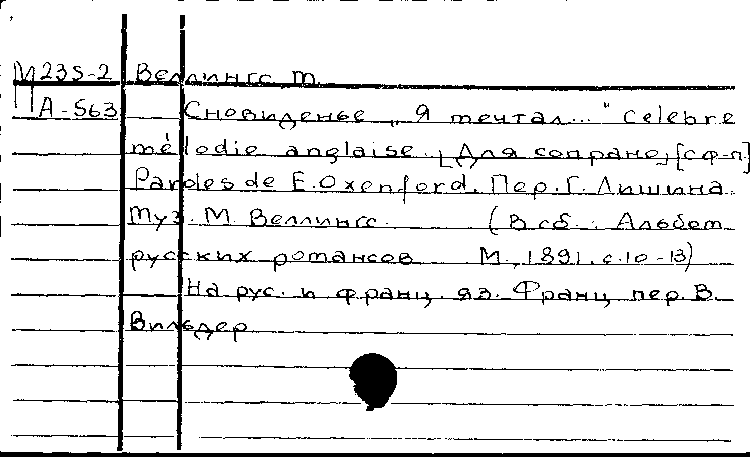 М235-2 Веллингс, М.
А-563 Сновиденье „Я мечтал..." Celebre
mélodie anglaise. [Для сопрано] [с ф-п.]
Paroles de E. Oxenford. Пер. Г. Лишина.
Муз. М. Веллингс. (В сб.: Альбом
русских романсов М., 1891, с. 10-13)
На рус. и франц. яз. Франц. пер. В.
Вильдер